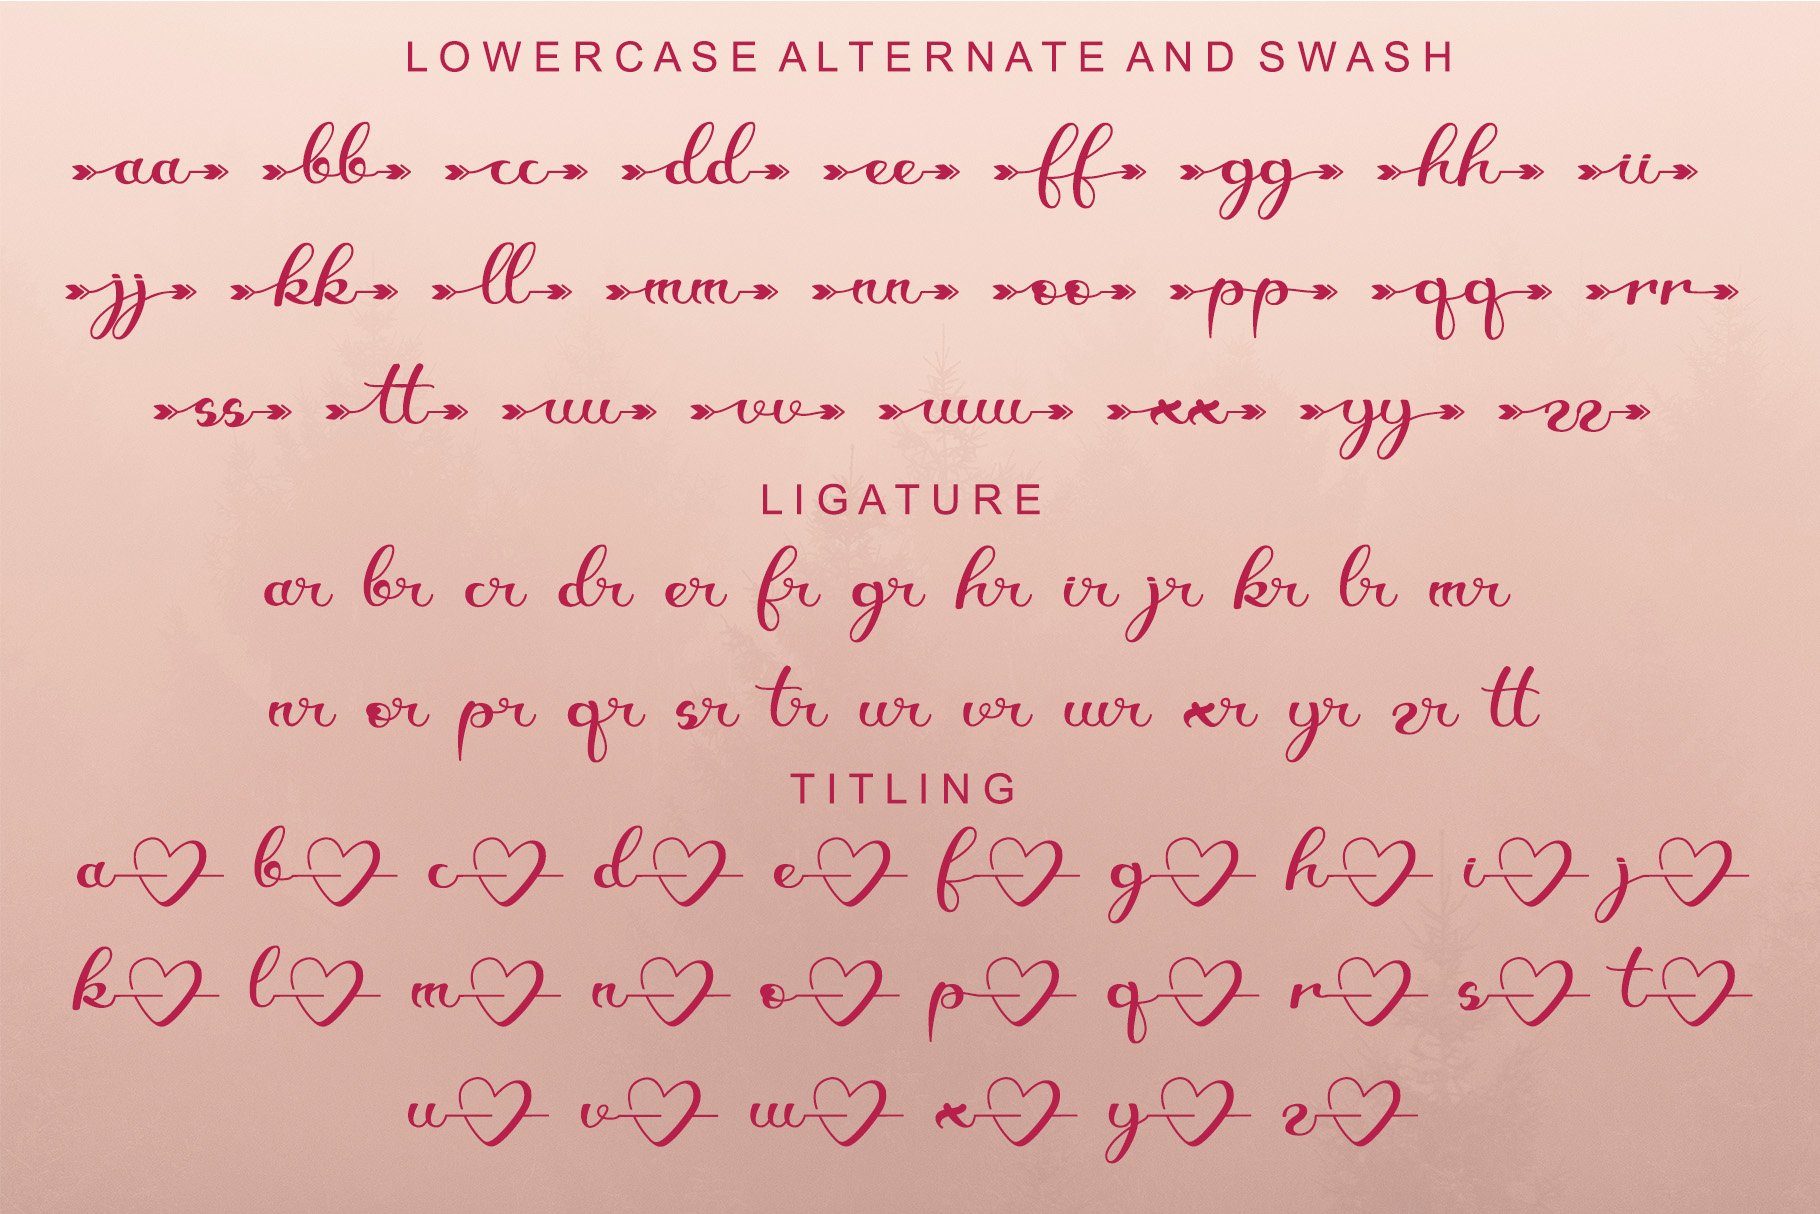 LOWERCASE ALTERNATE AND SWASH
aa bb cc dd ee ff gg hh ii
jj kk ll mm nn oo pp qq rr
ss tt uu vv ww xx yy zz
LIGATURE
ar br cr dr er fr gr hr ir jr kr lr mr
nr or pr qr sr tr ur vr wr xr yr zr tt
TITLING
a b c d e f g h i j
k l m n o p q r s t
u v w x y z